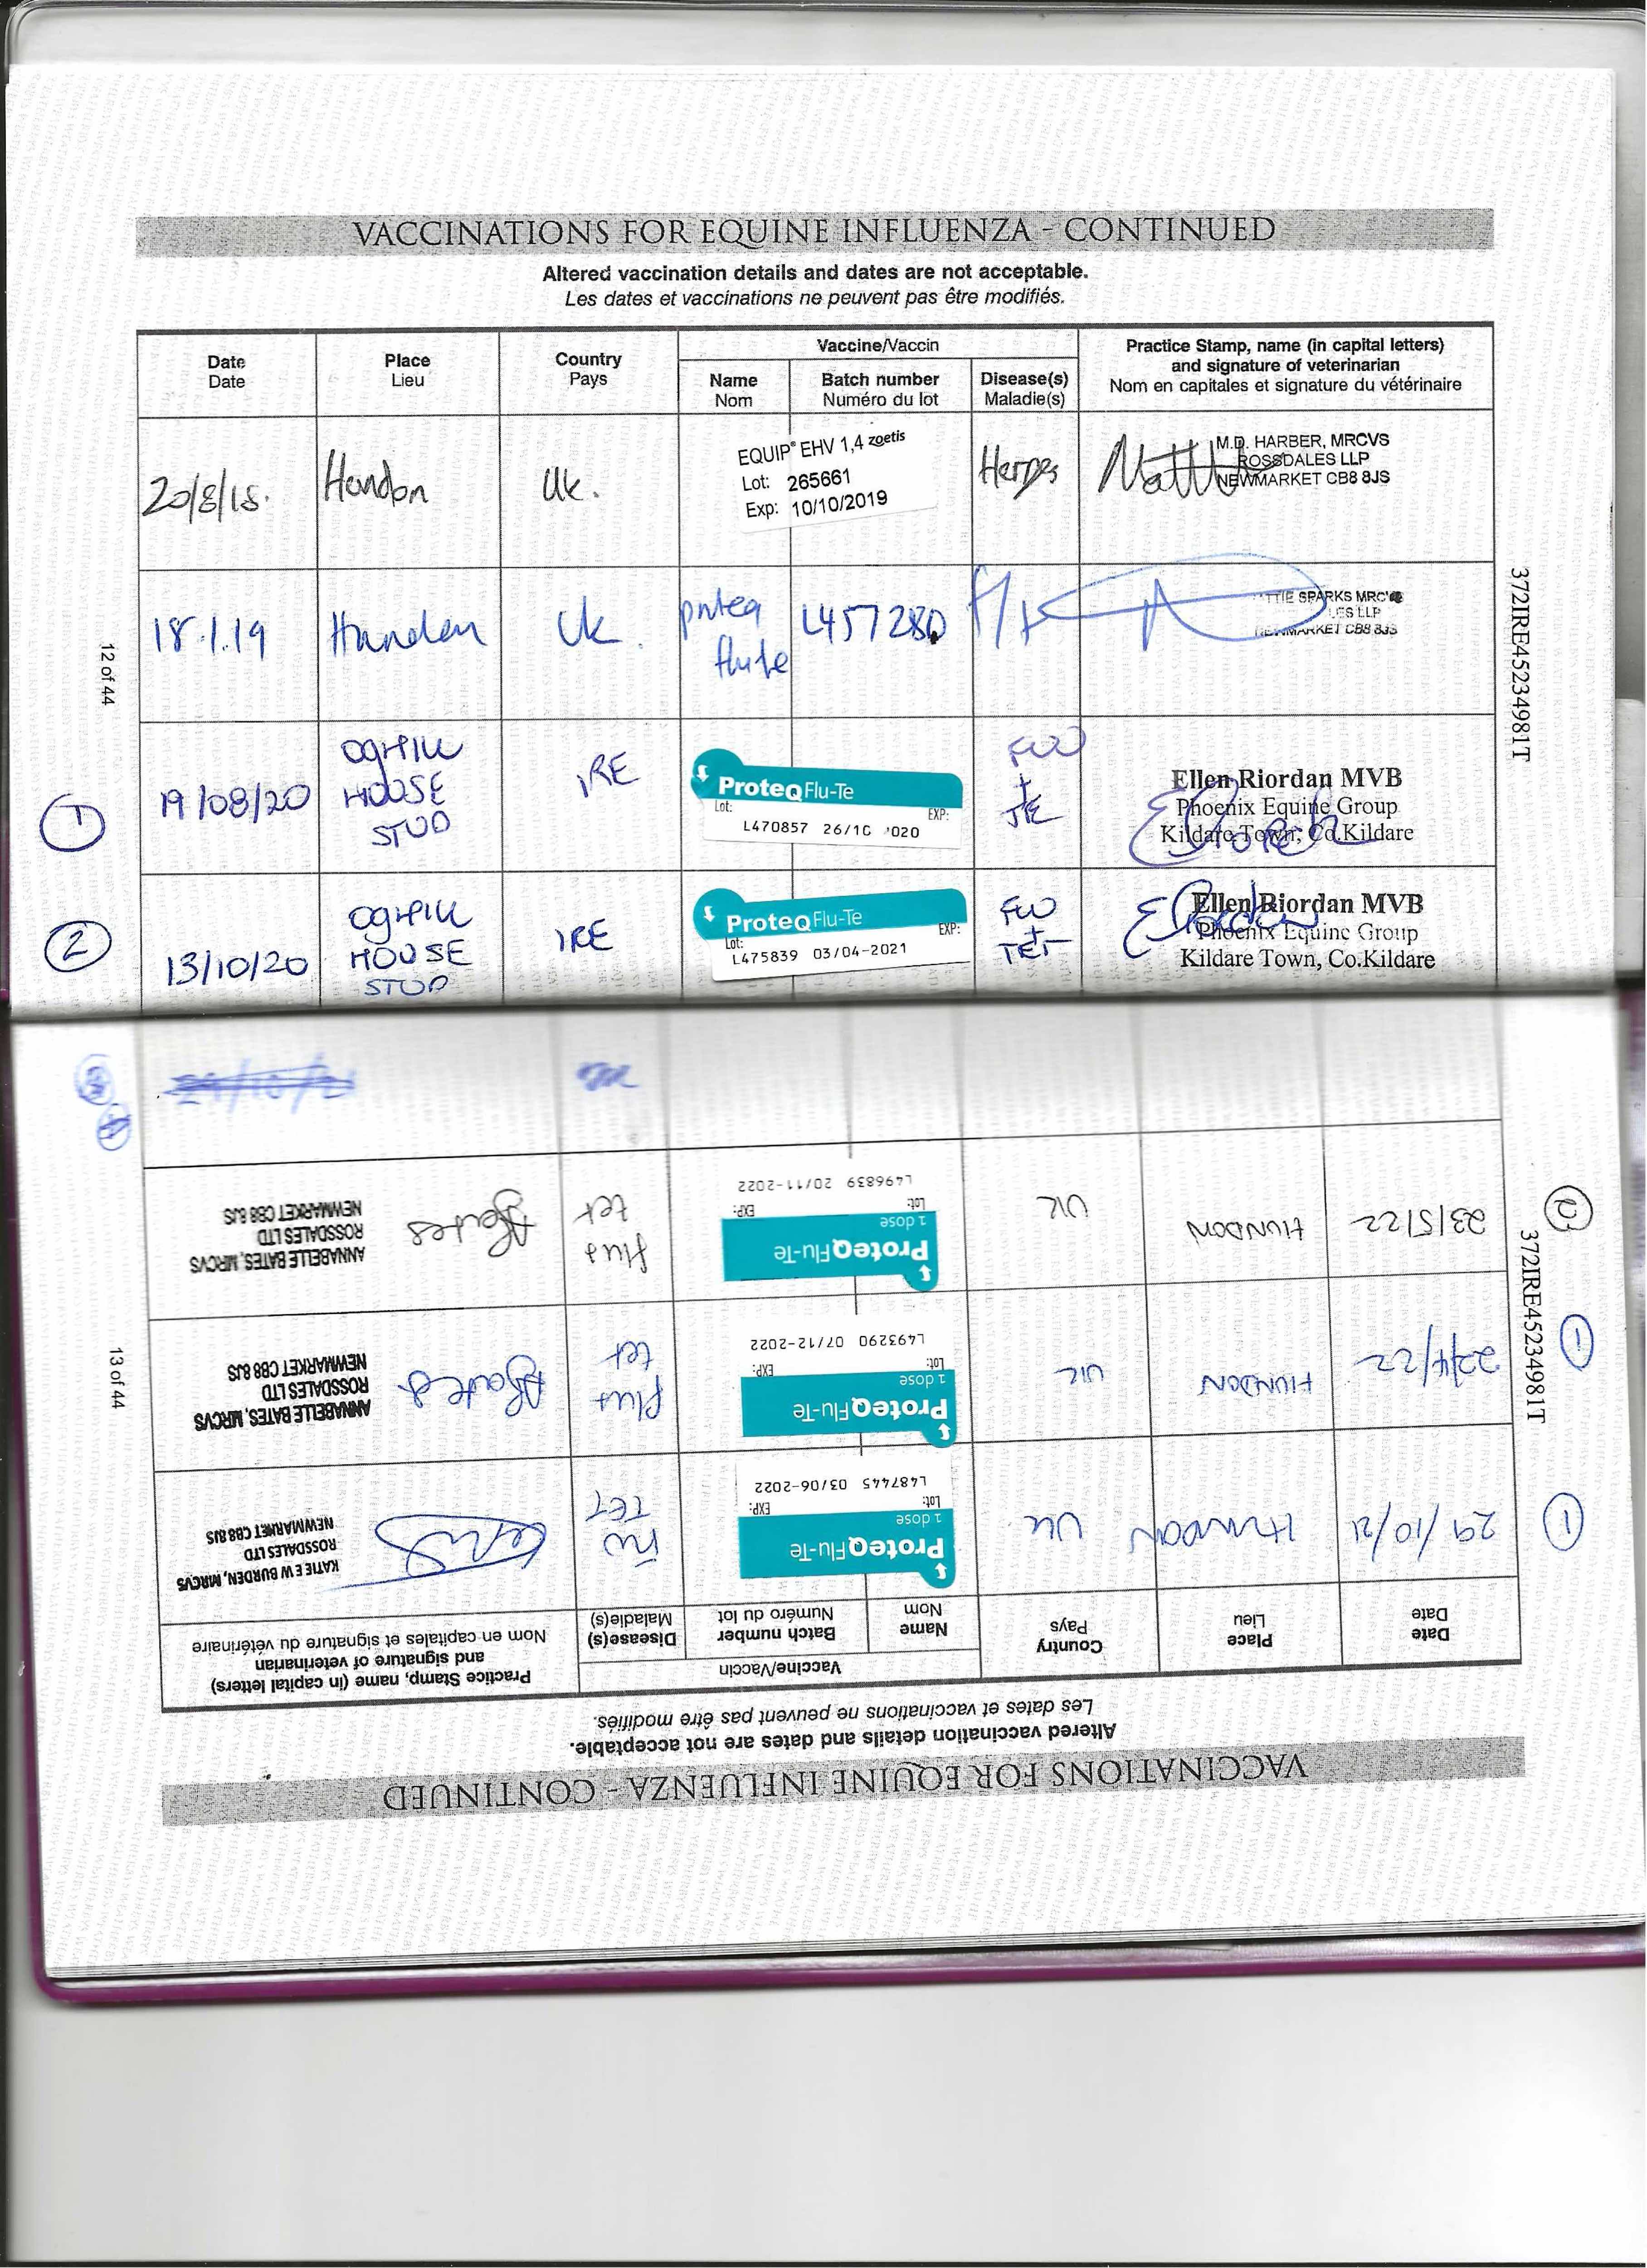 VACCINATIONS FOR EQUINE INFLUENZA - CONTINUED
Altered vaccination details and dates are not acceptable.
Les dates et vaccinations ne peuvent pas être modifiés.
Date
Date
Place
Lieu
Country
Pays
Vaccine/Vaccin
Name
Nom
Batch number
Numéro du lot
Disease(s)
Maladie(s)
Practice Stamp, name (in capital letters)
and signature of veterinarian
Nom en capitales et signature du vétérinaire
20/8/18.
Hundon
Uk.
EQUIP® EHV 1,4 zoetis
Lot: 265661
Exp: 10/10/2019
Herpes
M.D. HARBER, MRCVS
ROSSDALES LLP
NEWMARKET CB8 8JS
18.1.19
Hundon
Uk.
proteq
flute
L457280
F/T
SPARKS
LLP
NEWMARKET CB8 8JS
1
19/08/20
OGHILL
HOUSE
STUD
IRE
ProteqFlu-Te
Lot: EXP:
L470857
FLU
+
TE
Ellen Riordan MVB
Phoenix Equine Group
Kildare Town, Co.Kildare
2
13/10/20
OGHILL
HOUSE
STUD
IRE
ProteqFlu-Te
Lot: EXP:
L475839 03/04-2021
FLU
+
TET
Ellen Riordan MVB
Phoenix Equine Group
Kildare Town, Co.Kildare
12 of 44
372IRE45234981T
VACCINATIONS FOR EQUINE INFLUENZA - CONTINUED
Altered vaccination details and dates are not acceptable.
Les dates et vaccinations ne peuvent pas être modifiés.
Date
Date
Place
Lieu
Country
Pays
Vaccine/Vaccin
Name
Nom
Batch number
Numéro du lot
Disease(s)
Maladie(s)
Practice Stamp, name (in capital letters)
and signature of veterinarian
Nom en capitales et signature du vétérinaire
1
29/10/21
HUNDON
UK
ProteqFlu-Te
1 dose
Lot: EXP:
L487445 03/06-2022
FLU
TET
KATIE E W BURDEN, MRCVS
ROSSDALES LTD
NEWMARKET CB8 8JS
1
22/4/22
HUNDON
UK
ProteqFlu-Te
1 dose
Lot: EXP:
L493290 07/12-2022
flu+
tet
ABates
ANNABELLE BATES, MRCVS
ROSSDALES LTD
NEWMARKET CB8 8JS
2
23/5/22
HUNDON
UK
ProteqFlu-Te
1 dose
Lot: EXP:
L496839 20/11-2022
flu+
tet
ABates
ANNABELLE BATES, MRCVS
ROSSDALES LTD
NEWMARKET CB8 8JS
13 of 44
372IRE45234981T